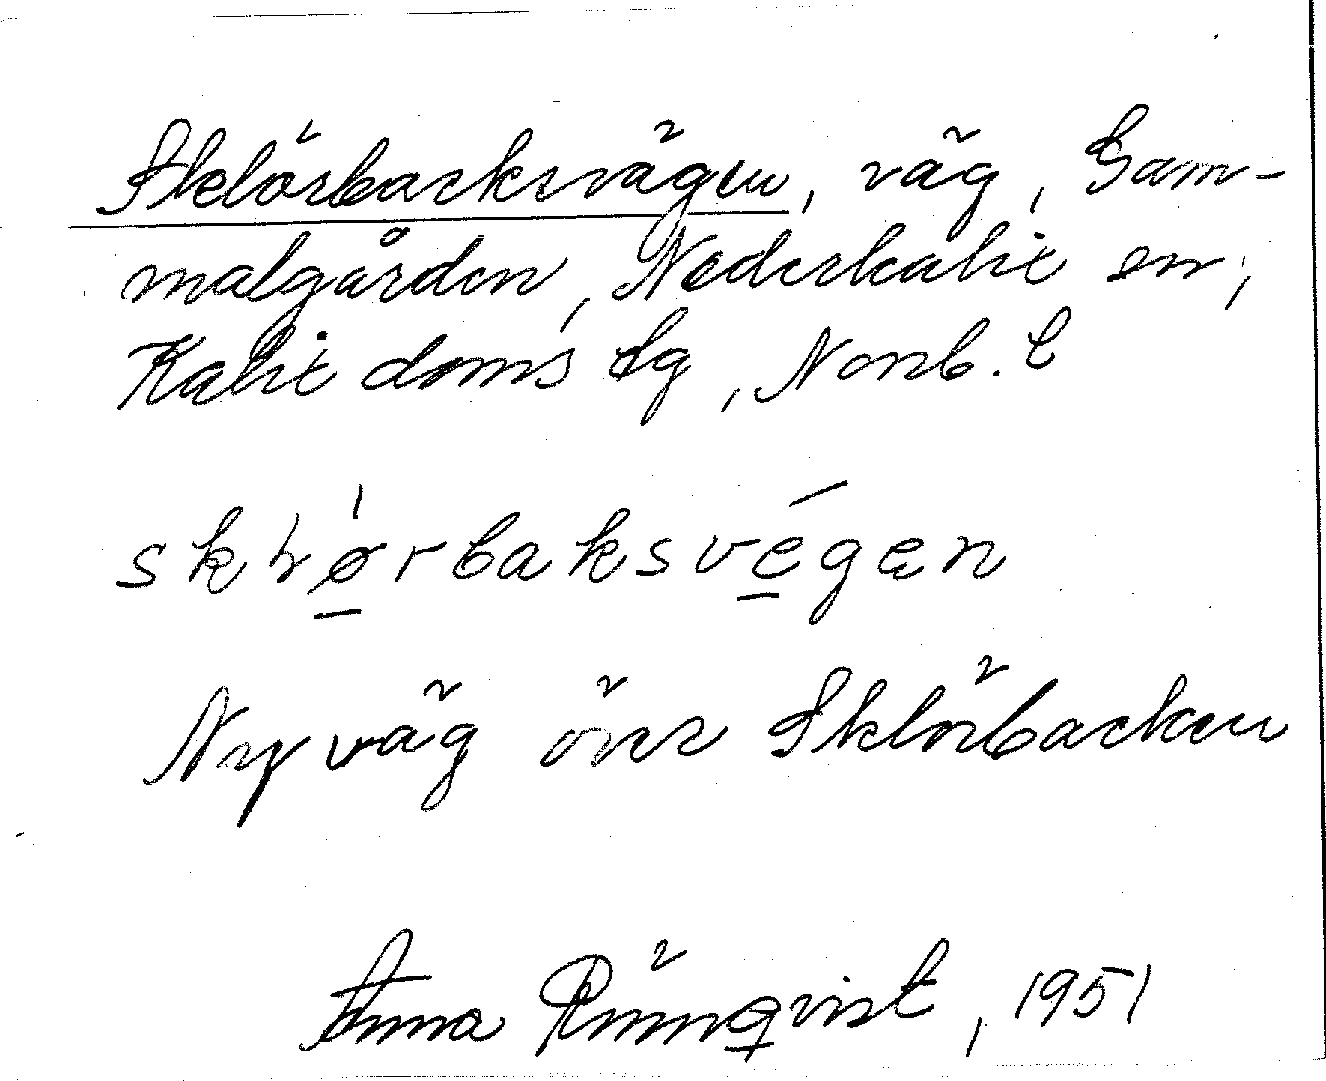 Sklörbacksvägen, väg, Gam-
malgården, Nederkalix sn,
Kalix doms lg, Norrb. l
sklørbaksvégæn
Ny väg över Sklörbacken
Anna Rönnqvist, 1951